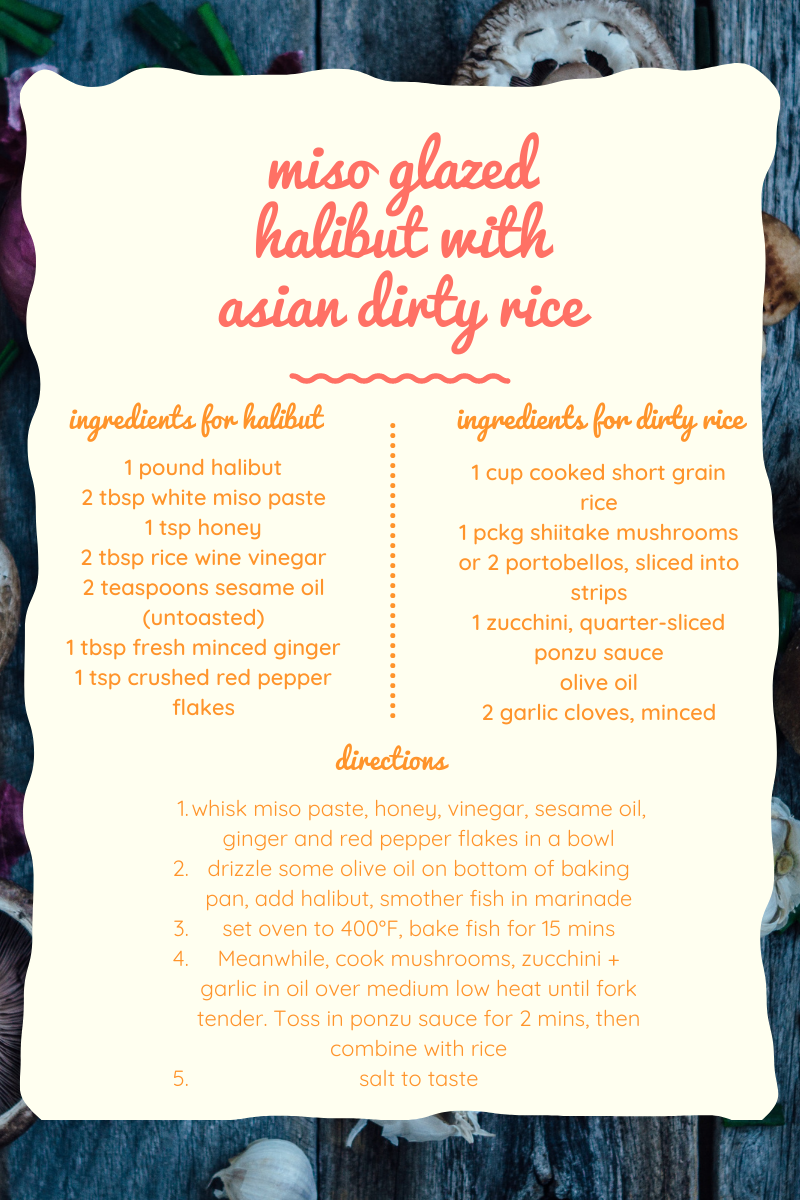 miso glazed
halibut with
asian dirty rice
ingredients for halibut
1 pound halibut
2 tbsp white miso paste
1 tsp honey
2 tbsp rice wine vinegar
2 teaspoons sesame oil
(untoasted)
1 tbsp fresh minced ginger
1 tsp crushed red pepper
flakes
ingredients for dirty rice
1 cup cooked short grain
rice
1 pckg shiitake mushrooms
or 2 portobellos, sliced into
strips
1 zucchini, quarter-sliced
ponzu sauce
olive oil
2 garlic cloves, minced
directions
1. whisk miso paste, honey, vinegar, sesame oil,
ginger and red pepper flakes in a bowl
2. drizzle some olive oil on bottom of baking
pan, add halibut, smother fish in marinade
3. set oven to 400°F, bake fish for 15 mins
4. Meanwhile, cook mushrooms, zucchini +
garlic in oil over medium low heat until fork
tender. Toss in ponzu sauce for 2 mins, then
combine with rice
5. salt to taste